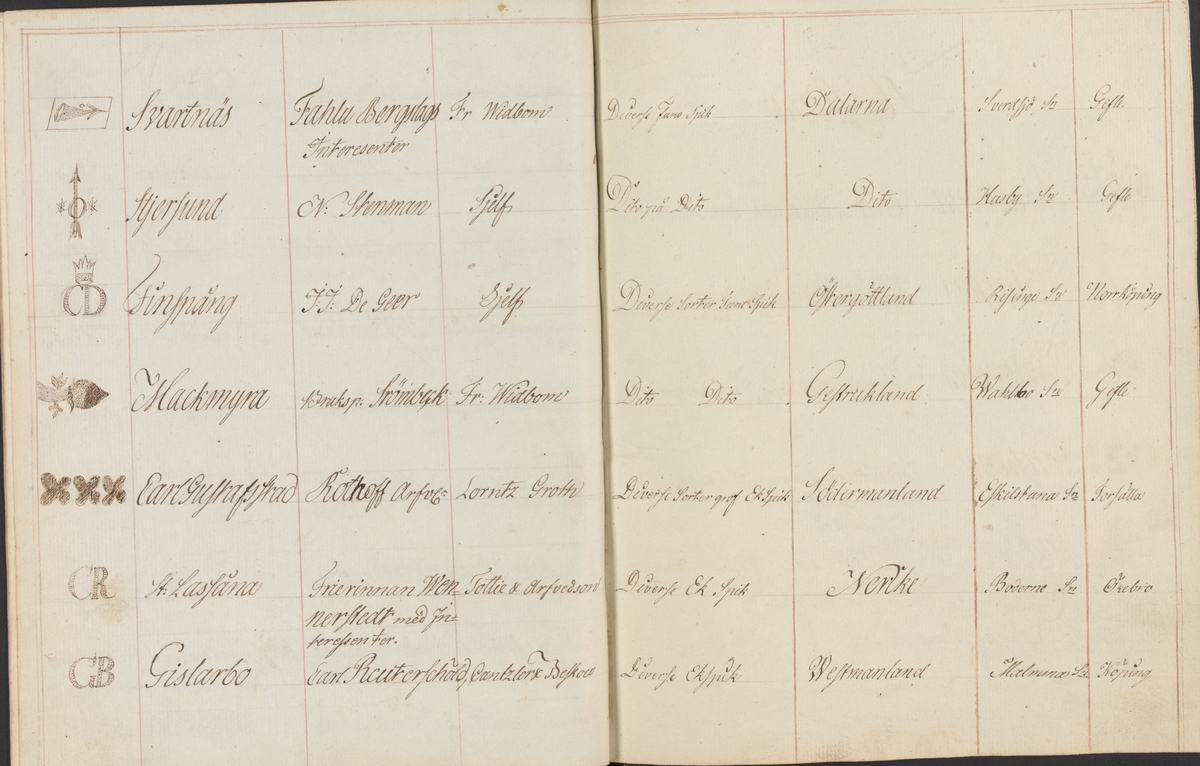 Svartnäs Fahlu Bergslags Fr Widbom Diverse Jern Spik Dalarna Sverdsjö Sn Gefle
Interesenter
Stjersund N: Stenman Sjelf Dito på Dito Dito Husby Sn Gefle
CD Finspång J: J: De Geer Sjelf Diverse Sorter Svenc Spik Östergöttland Risinge Sn Norrköping
Mackmyra Bruksp: Strömbäk Fr: Widbom Dito Dito Gestreckland Wahlbo Sn Gefle
Carl Gustafsstad Rothoff Arfvg: Lorntz Groth Diverse Sorter grof Ek Spik Södermanland Eskilstuna Sn Torshälla
CR St: Lassåna Friherinnan Wen- Tottie & Arfvedson Diverse Ek Spik Nerike Boderne Sn Örebro
nerstedt med In=
teressenter.
GB Gislarbo Carl Reuterschöld, Cantzler & Beskow Diverse Ekspik Westmanland Malmma Sn Köping